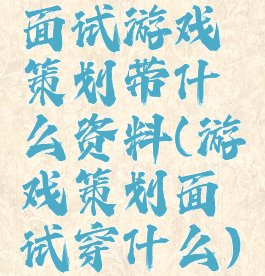 面试游戏
策划带什
么资料(游
戏策划面
试穿什么)